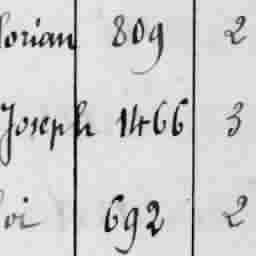 lorian 809 2
Joseph 1466 3
oi 692 2